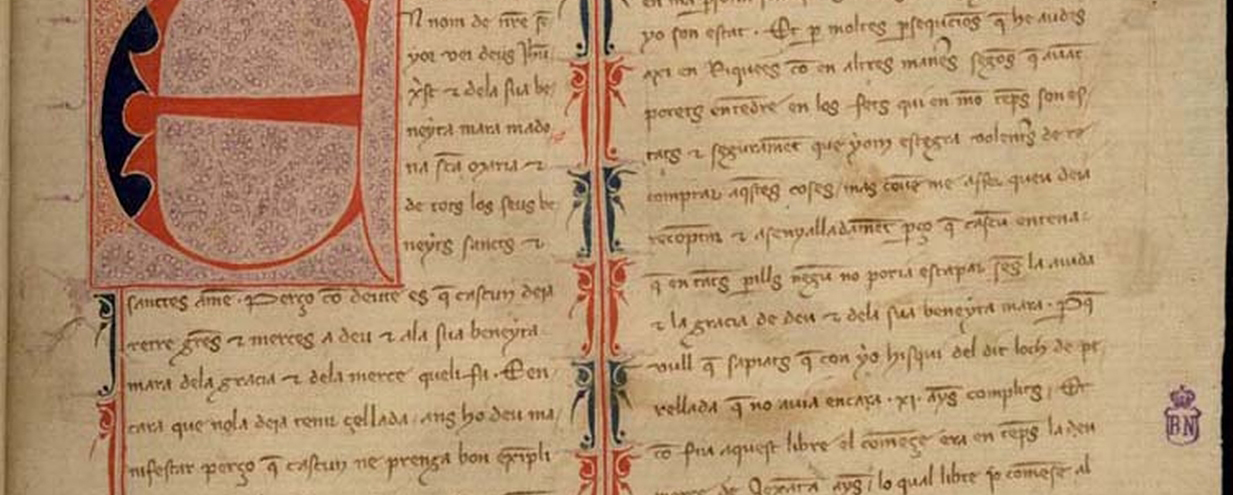 N nom de nr̄e se
yor ver deus Jhū
xp̄st ⁊ dela sua be
neyta mara mado
na sc̄a maria ⁊
de tots los seus be
neyts sancts ⁊
sanctes amē · Perço cō deute es q̄ cascun deja
retre gr̄es ⁊ merces a deu ⁊ ala sua beneyta
mara dela gracia ⁊ dela merce queli fa · E en
cara que nola deja tenir çellada ans ho deu ma
nifestar perço q̄ cascun ne prenga bon exēpli
yo son estat · Et p moltes p̄sequcios q̄ he audes
axi en Riquees cō en altres man̄es segōs q̄ auāt
porets entēdre en los fets qui en mō tēps son es
tats ⁊ seguramēt que yom estegra volenīs de re
comptar aq̄stes coses mas coue me affer queu deia
recōptar ⁊ asenyalladamēt pço q̄ cascū entena
q̄ en tāts pills negū no poria escapar seḡs la aiuda
⁊ la gracia de deu ⁊ dela sua beneyta mara · Pq̄
vull q̄ sapiats q̄ con yo hisqui del dit loch de pe
rellada q̄ no auia encara · xi · ays complits / Et
cō fiu aquest libre el comēçe era en tēps la deu
merce de Lexāta ays / lo qual libre yo comēse al
BN